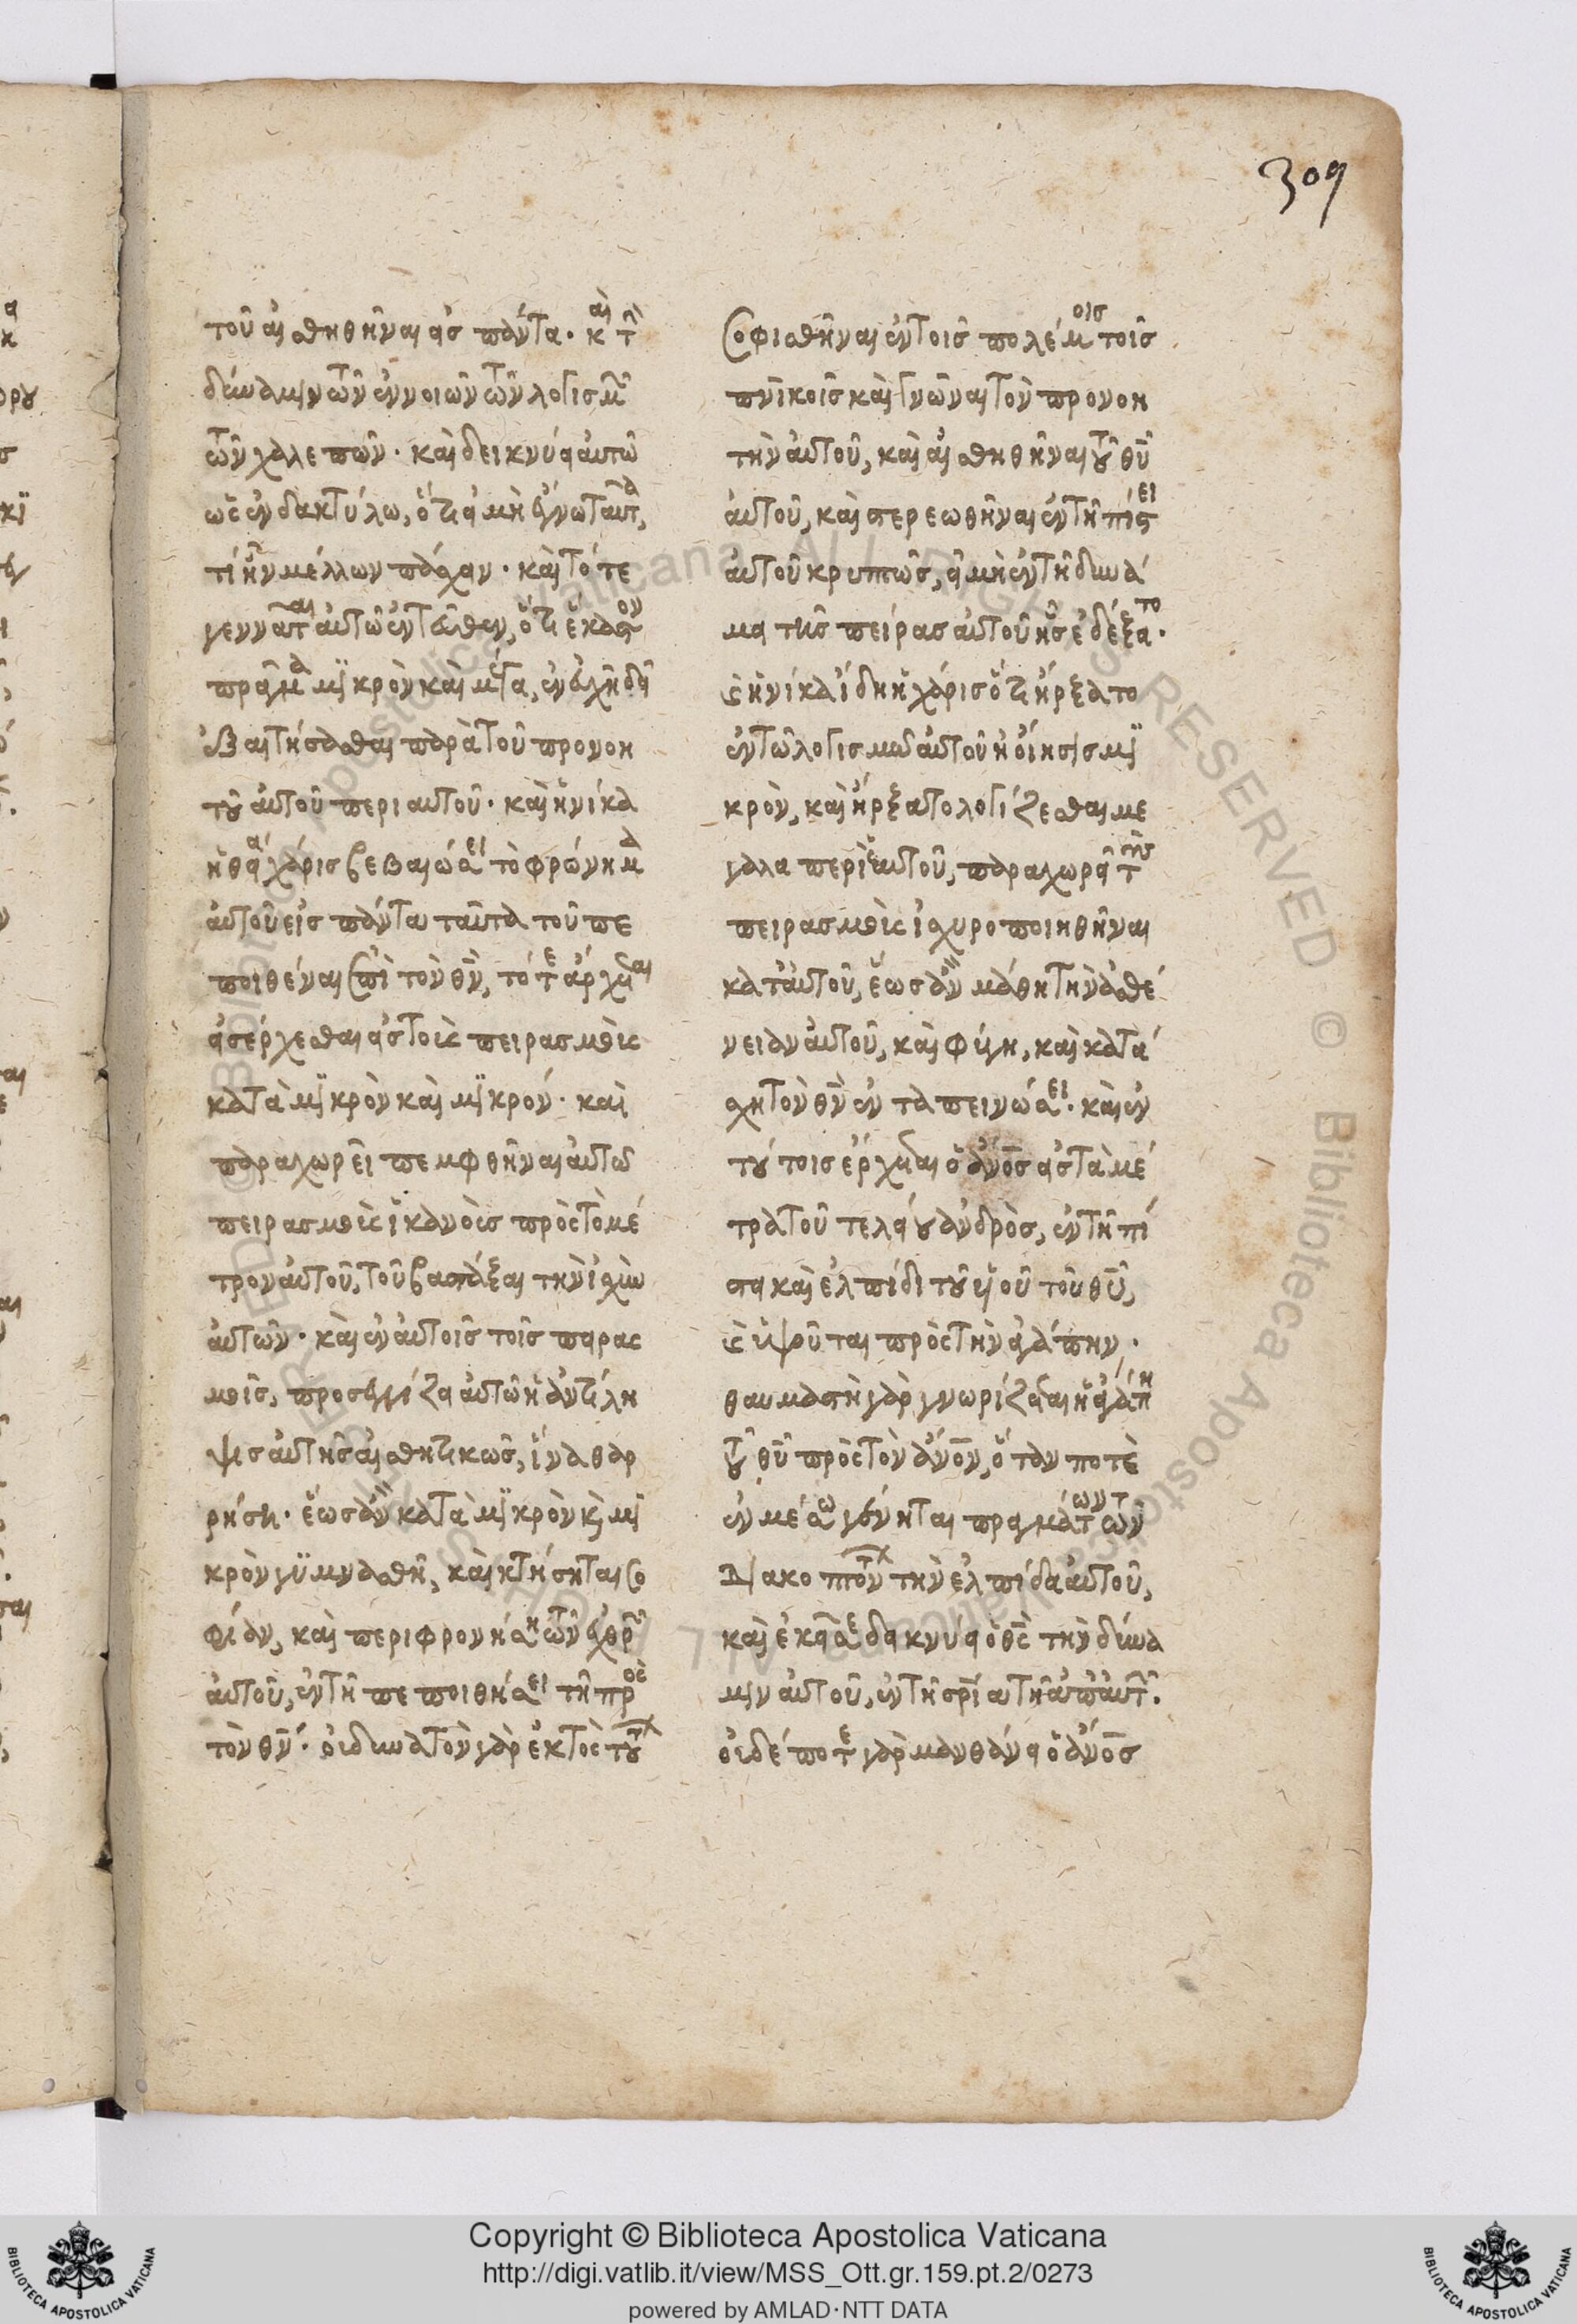 309
τοῦ αἰσθηθῆναι εἰς πάντα· καὶ τὴν
δύναμιν τῶν ἐννοιῶν τῶν λογισμῶν
τῶν χαλεπῶν· καὶ δεικνύει αὐτῶ
ὡς ἐν δακτύλω, ὅτι εἰ μὴ ταῦτα,
τί ἦν μέλλων πάσχειν· καὶ τότε
γεννᾶται αὐτῶ ἐντεῦθεν, ὅτι ἕκαστον
πρᾶγμα μϊκρὸν καὶ μέγα, ἐν εὐχῆ δεῖ
ζητήσασθαι παρὰ τοῦ προνοη
τοῦ αὐτοῦ περι αυτοῦ· καὶ ἡνίκα
ἡ θεία χάρις βεβαιώσει τὸ φρόνημα
αὐτοῦ εἰς πάντα ταῦτα τοῦ πε
ποιθέναι ἐπὶ τὸν θν, τότε ἄρχεται
εἰσέρχεσθαι εἰς τοὺς πειρασμοὺς
κατὰ μϊκρὸν καὶ μϊκρόν· καὶ
παραχωρεῖ πεμφθῆναι αὐτῶ
πειρασμοὺς ἱκανοὺς πρὸς τὸ μέ
τρον αὐτοῦ, τοῦ βαστάξαι τὴν ἰσχὺν
αὐτῶν· καὶ ἐν αὐτοῖς τοῖς πειρασ
μοῖς, προσεγγίζει αὐτῶ ἡ ἀντίλη
ψις αὐτῆς αἰσθητικῶς, ἵνα θαρ
ρήση· ἕως ἂν κατὰ μϊκρὸν καὶ μϊ
κρὸν γϋμνασθῆ, καὶ κτήσηται σο
φίαν, καὶ περιφρονήση τῶν ἐχθρῶν
αὐτοῦ, ἐν τῆ πεποιθήσει τῆ πρὸς
τὸν θν· οὐ δυνατὸν γὰρ ἐκτὸς τούτων
σοφισθῆναι ἐν τοῖς πολέμοις τοῖς
πνϊκοῖς καὶ γνῶναι τὸν προνοη
τὴν αὐτοῦ, καὶ αἰσθηθῆναι τοῦ θῦ
αὐτοῦ, καὶ στερεωθῆναι ἐν τῆ πίστει
αὐτοῦ κρυπτῶς, εἰ μὴ ἐν τῆ δυνά
μει τῆς πείρας αὐτοῦ ἧς ἐδέξατο·
καὶ ἡνίκα ἴδη ἡ χάρις ὅτι ἤρξατο
ἐν τῶ λογισμῶ αὐτοῦ ἡ οἴησις μϊ
κρὸν, καὶ ἤρξατο λογίζεσθαι με
γάλα περὶ ἑαυτοῦ, παραχωρεῖ τοὺς
πειρασμοὺς ἰσχυροποιηθῆναι
κατ' αὐτοῦ, ἕως ἂν μάθη τὴν ἀσθέ
νειαν αὐτοῦ, καὶ φύγη, καὶ κατά
σχη τὸν θν ἐν ταπεινώσει· καὶ ἐν
τούτοις ἔρχεται ὁ ἄνος εἰς τὰ μέ
τρα τοῦ τελείου ἀνδρὸς, ἐν τῆ πί
στει καὶ ἐλπίδι τοῦ υἱοῦ τοῦ θῦ,
καὶ ὑψοῦται πρὸς τὴν ἀγάπην·
θαυμαστὴ γὰρ γνωρίζεται ἡ ἀγάπη
τοῦ θῦ πρὸς τὸν ἄνον, ὅταν ποτὲ
ἐν μέσω γένηται πραγμάτων τῶν
διακοπτόντων τὴν ἐλπίδα αὐτοῦ,
καὶ ἐκεῖσε δεικνύει ὁ θς τὴν δύνα
μιν αὐτοῦ, ἐν τῆ σρία τῆ ἀπ' αὐτοῦ.
οὐδέποτε γὰρ μανθάνει ὁ ἄνος
Copyright © Biblioteca Apostolica Vaticana
http://digi.vatlib.it/view/MSS_Ott.gr.159.pt.2/0273
powered by AMLAD·NTT DATA
BIBLIOTECA APOSTOLICA VATICANA
BIBLIOTECA APOSTOLICA VATICANA